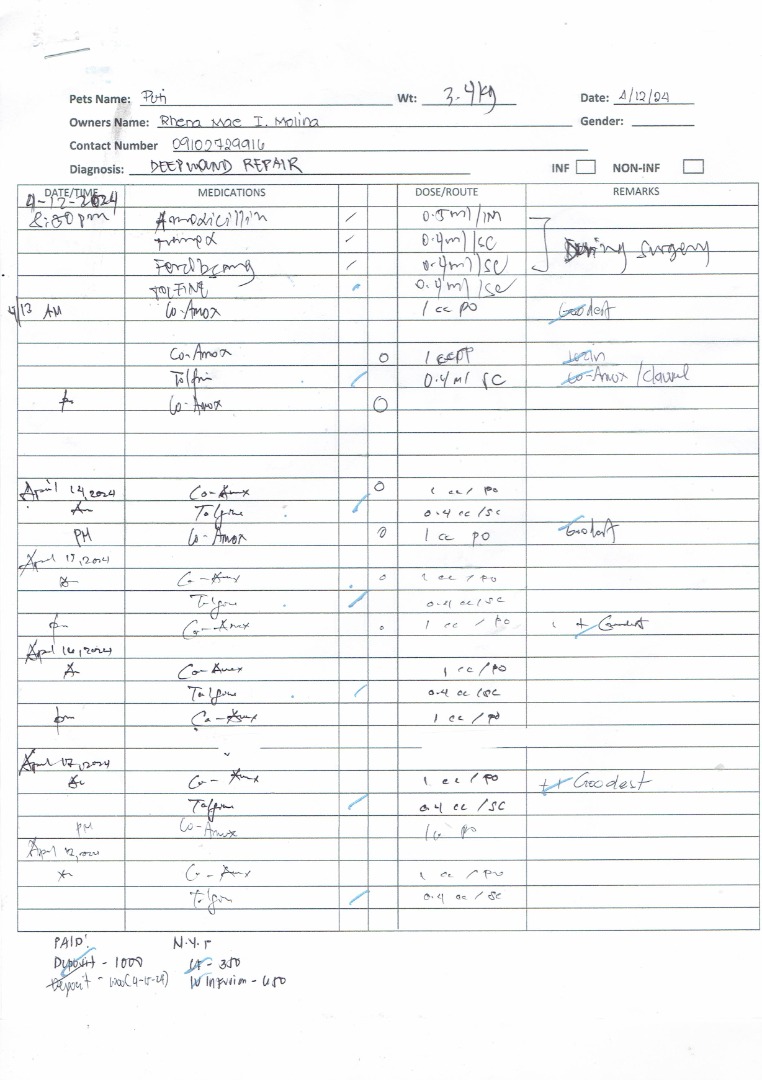 Pets Name: Puti Wt: 3.4kg Date: 4/12/24
Owners Name: Rhena Mae I. Molina Gender:
Contact Number 09102729916
Diagnosis: DEEP WOUND REPAIR INF NON-INF
DATE/TIME MEDICATIONS DOSE/ROUTE REMARKS
4-12-2024
8:30pm Amoxicillin 0.5ml/IM
0.4ml/SC During surgery
0.4ml/SC
TOLFINE 0.4ml/SC
4/13 AM Co-Amox 1 cc PO Goodest
Co-Amox 1 cc
Tolfin 0.4ml SC Co-Amox/Clavul
pm Co-Amox
April 14, 2024 Co-Amx 1 cc/PO
Am Tolfine 0.4 cc/SC
PM Co-Amox 1 cc PO Goodest
April 15, 2024
Co-Amx 1 cc/PO
Tolfine 0.4 cc/SC
pm Co-Amx 1 cc/PO + Goodest
April 16, 2024
A Co-Amx 1 cc/PO
Tolfine 0.4 cc/SC
pm Co-Amx 1 cc/PO
April 17, 2024
Co-Amx 1 cc/PO ++ Goodest
Tolfine 0.4 cc/SC
PM Co-Amox 1cc PO
April
Co-Amx 1 cc/PO
Tolfin 0.4 cc/SC
PAID: N.Y.P
Deposit - 1000 - 350
Deposit - 1000(4-15-24) IV Infusion - 450